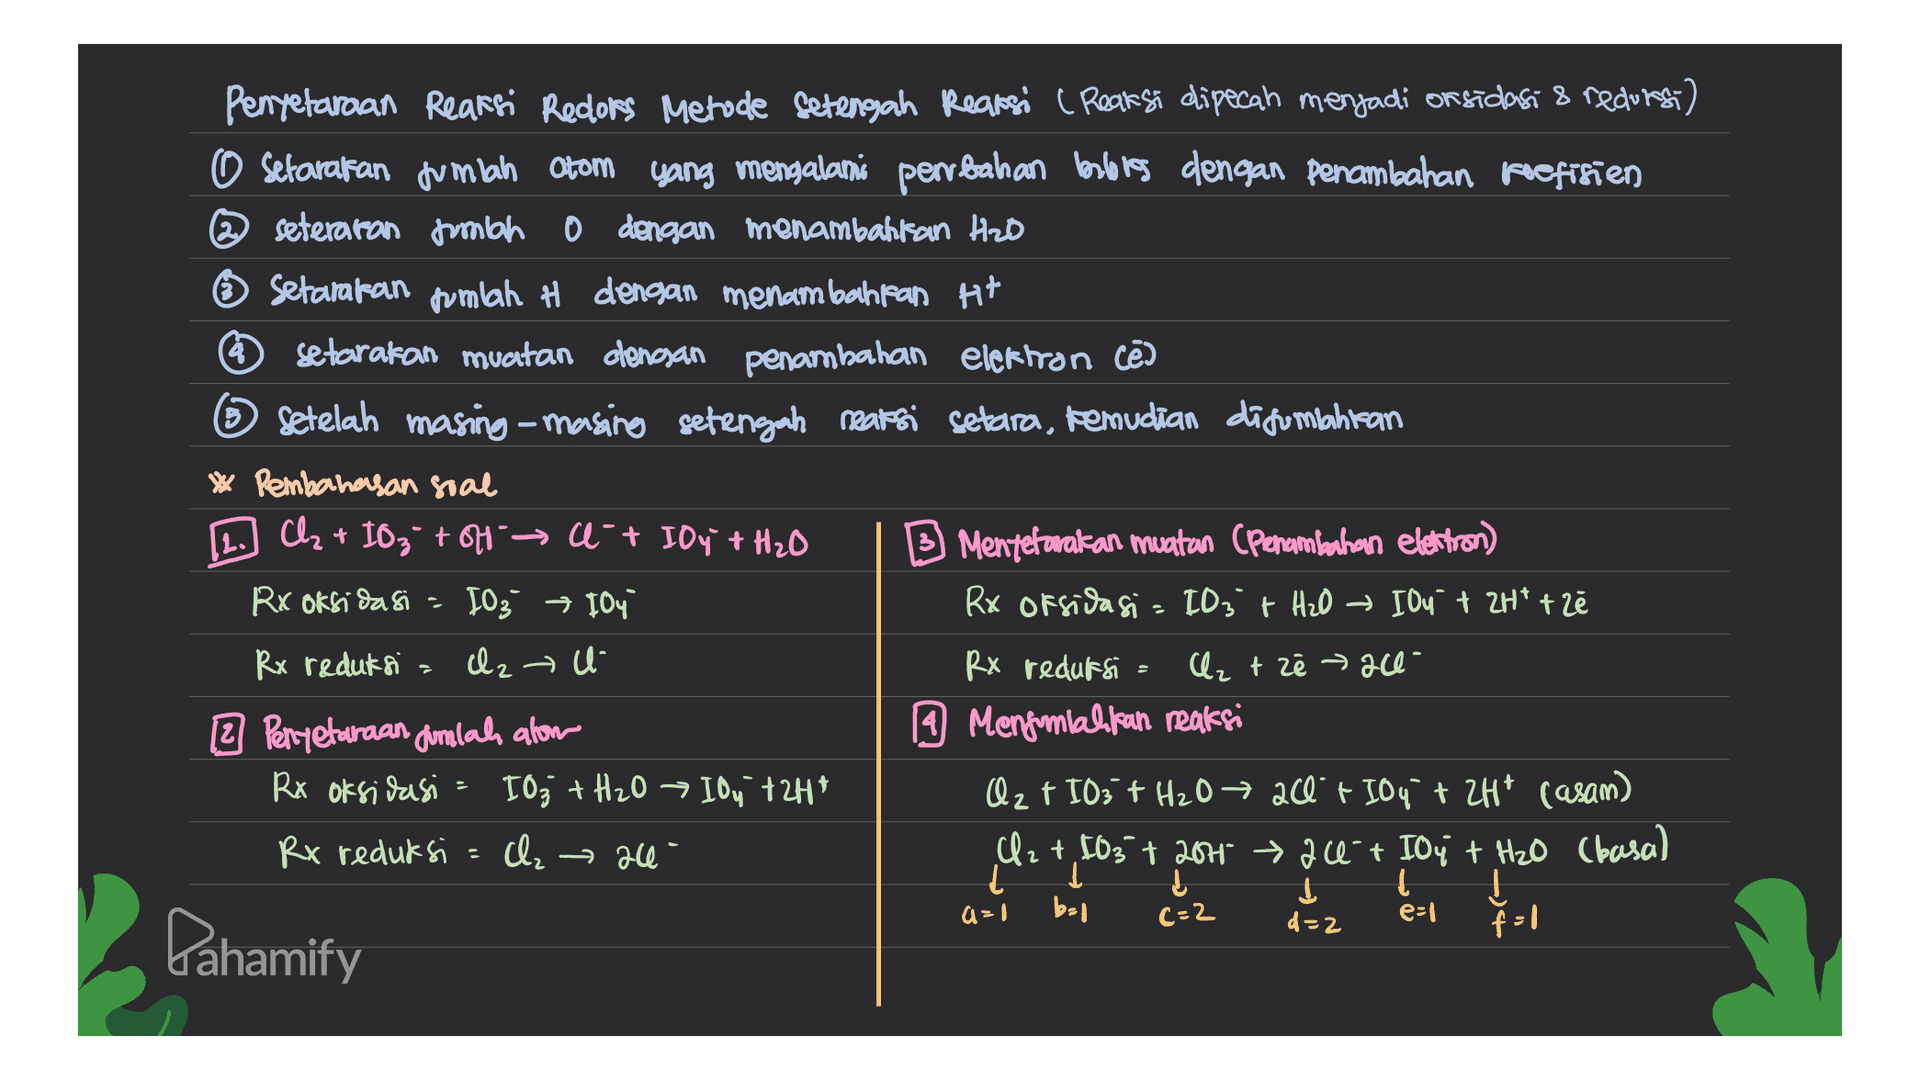 Penyetaraan Reaksi Redoks Metode Setengah Reaksi (Reaksi dipecah menjadi oksidasi & reduksi)
① Setarakan jumlah atom yang mengalami perubahan biloks dengan Penambahan koefisien
② setarakan jumlah O dengan menambahkan H₂O
③ Setarakan jumlah H dengan menambahkan H⁺
④ setarakan muatan dengan penambahan elektron (ē)
⑤ Setelah masing-masing setengah reaksi setara, kemudian dijumlahkan
※ Pembahasan soal
1. Cl₂ + IO₃⁻ + OH⁻ → Cl⁻ + IO₄⁻ + H₂O
Rx oksidasi = IO₃⁻ → IO₄⁻
Rx reduksi = Cl₂ → Cl⁻
2 Penyetaraan jumlah atom
Rx oksidasi = IO₃⁻ + H₂O → IO₄⁻ + 2H⁺
Rx reduksi = Cl₂ → 2Cl⁻
3 Menyetarakan muatan (Penambahan elektron)
Rx oksidasi = IO₃⁻ + H₂O → IO₄⁻ + 2H⁺ + 2ē
Rx reduksi = Cl₂ + 2ē → 2Cl⁻
4 Menjumlahkan reaksi
Cl₂ + IO₃⁻ + H₂O → 2Cl⁻ + IO₄⁻ + 2H⁺ (asam)
Cl₂ + IO₃⁻ + 2OH⁻ → 2Cl⁻ + IO₄⁻ + H₂O (basa)
a=1 b=1 c=2 d=2 e=1 f=1
Pahamify